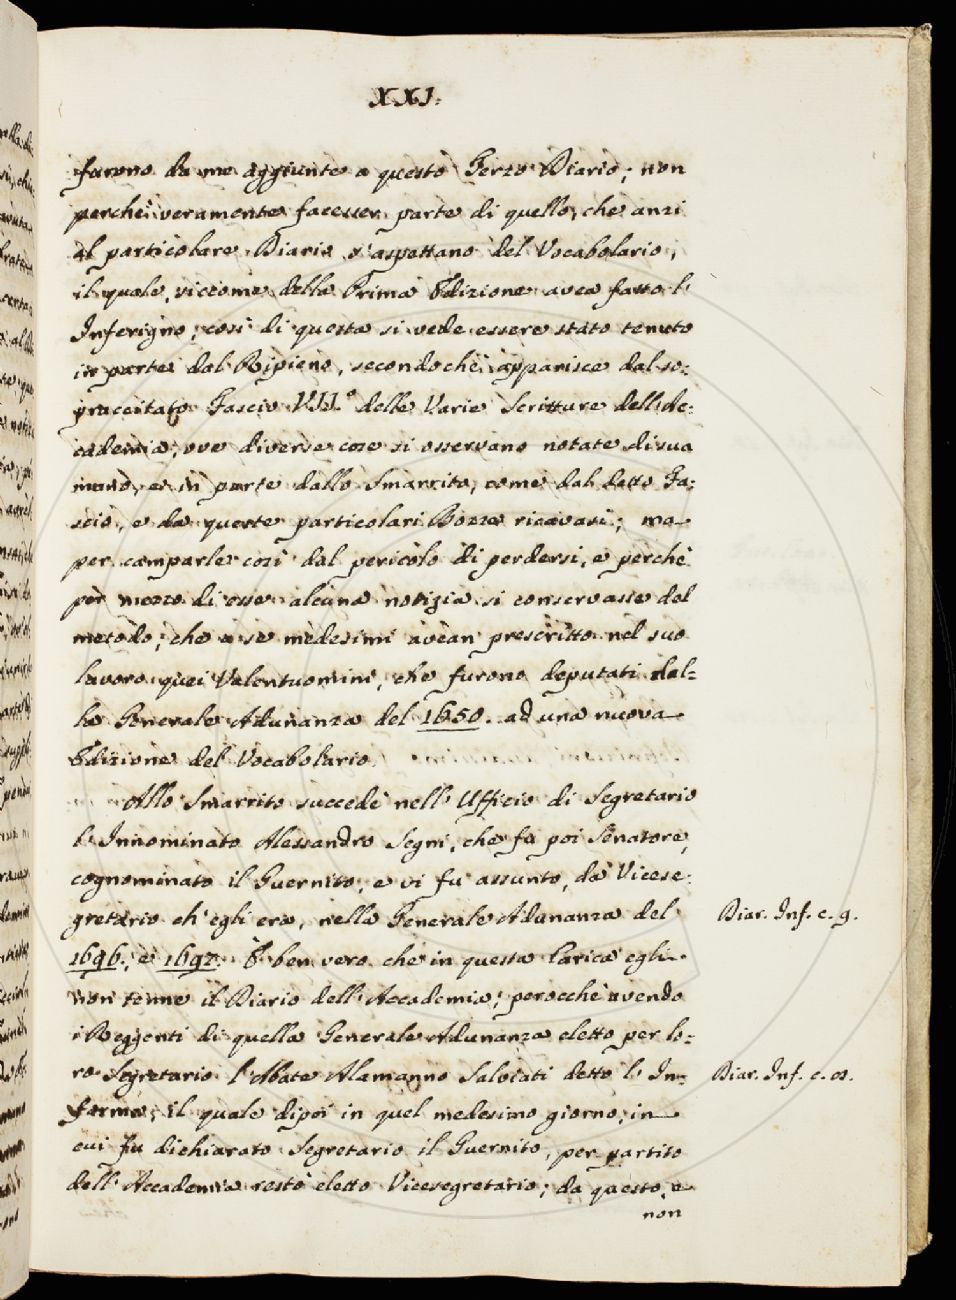 XXI.
furono da me aggiunte a questo Terzo Diario; non
perchè veramente facesser parte di quello, che anzi
al particolare Diario s'aspettano del Vocabolario,
il quale, siccome della Prima Edizione avea fatto l'
Inferigno, così di questa si vede essere stato tenuto
in parte dal Ripieno, secondochè apparisce dal so=
praccitato Fascio VII.° delle Varie Scritture dell'Ac=
cademia, ove diverse cose si osservano notate di sua
mano, e in parte dallo Smarrito, come dal detto Fa=
scio, e da queste particolari Bozze ricavasi; ma
per camparle così dal pericolo di perdersi, e perchè
per mezzo di esse alcuna notizia si conservasse del
metodo, che a se medesimi avean prescritto nel suo
lavoro quei Valentuomini, che furono deputati dal=
la Generale Adunanza del 1650. ad una nuova
Edizione del Vocabolario.
Allo Smarrito succedè nell'Uffizio di Segretario
l'Innominato Alessandro Segni, che fu poi Senatore,
cognominato il Guernito, e vi fu assunto, da Vicese=
gretario ch'egli era, nella Generale Adunanza del
Diar. Inf. c. 9.
1696., e 1697. È ben vero che in questa Carica egli
non tenne il Diario dell'Accademia; perocchè avendo
i Reggenti di quella Generale Adunanza eletto per lo=
ro Segretario l'Abate Alamanno Salviati detto l'In=
Diar. Inf. c.
forme, il quale dipoi in quel medesimo giorno, in
cui fu dichiarato Segretario il Guernito, per partito
dell'Accademia restò eletto Vicesegretario; da questo, e
non